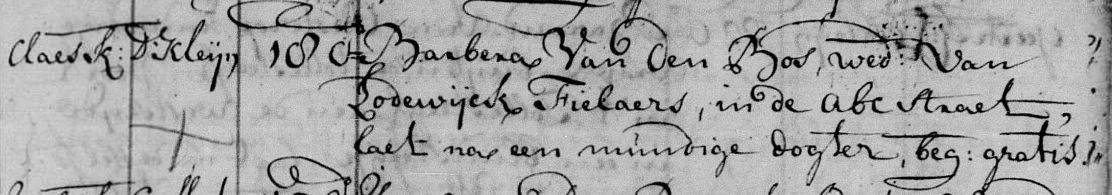 Claes k: D: Kleijn 18 d: Barbera Van den Bos, wed: Van
Lodewijck Fielaers, in de abc straet,
laet na een mundige dogter, beg: gratis